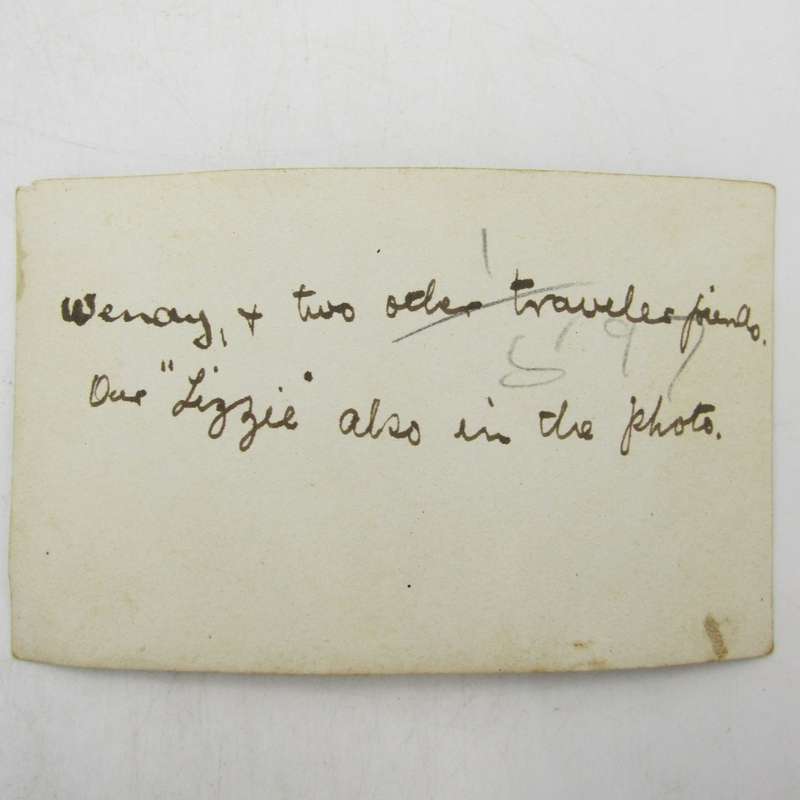 Wenay, + two oder traveler friends.
Our "Lizzie" also in the photo.
1
597